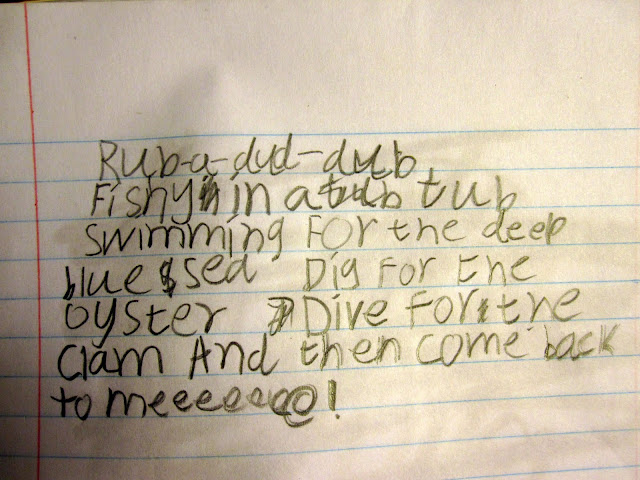 Rub-a-dud-dub
Fishy in a tub
swimming For the deep
blue sea Dig For the
oyster Dive For the
clam And then come back
to meeeeeee!